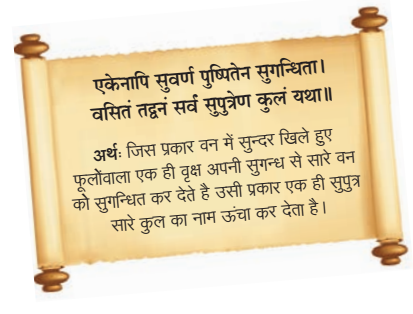 एकेनापि सुवर्ण पुष्पितेन सुगन्धिता।
वसितं तद्वनं सर्व सुपुत्रेण कुलं यथा॥
अर्थः जिस प्रकार वन में सुन्दर खिले हुए
फूलोंवाला एक ही वृक्ष अपनी सुगन्ध से सारे वन
को सुगन्धित कर देते है उसी प्रकार एक ही सुपुत्र
सारे कुल का नाम ऊंचा कर देता है।